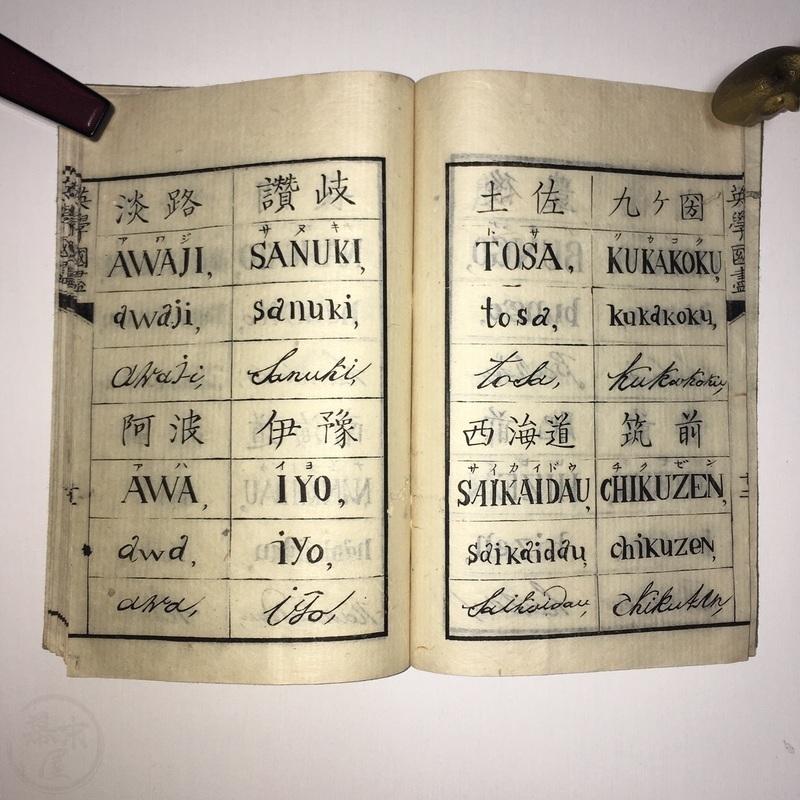 英學國盡
淡路
アワジ
AWAJI,
awaji,
awaji,
阿波
アハ
AWA,
awa,
awa,
讃岐
サヌキ
SANUKI,
sanuki,
Sanuki,
伊豫
イヨ
IYO,
iyo,
iyo,
土佐
トサ
TOSA,
tosa,
tosa,
西海道
サイカイドウ
SAIKAIDAU,
saikaidau,
Saikaidau,
九ケ圀
クカコク
KUKAKOKU,
kukakoku,
kukakoku,
筑前
チクゼン
CHIKUZEN,
chikuzen,
chikuzen,
英學國盡